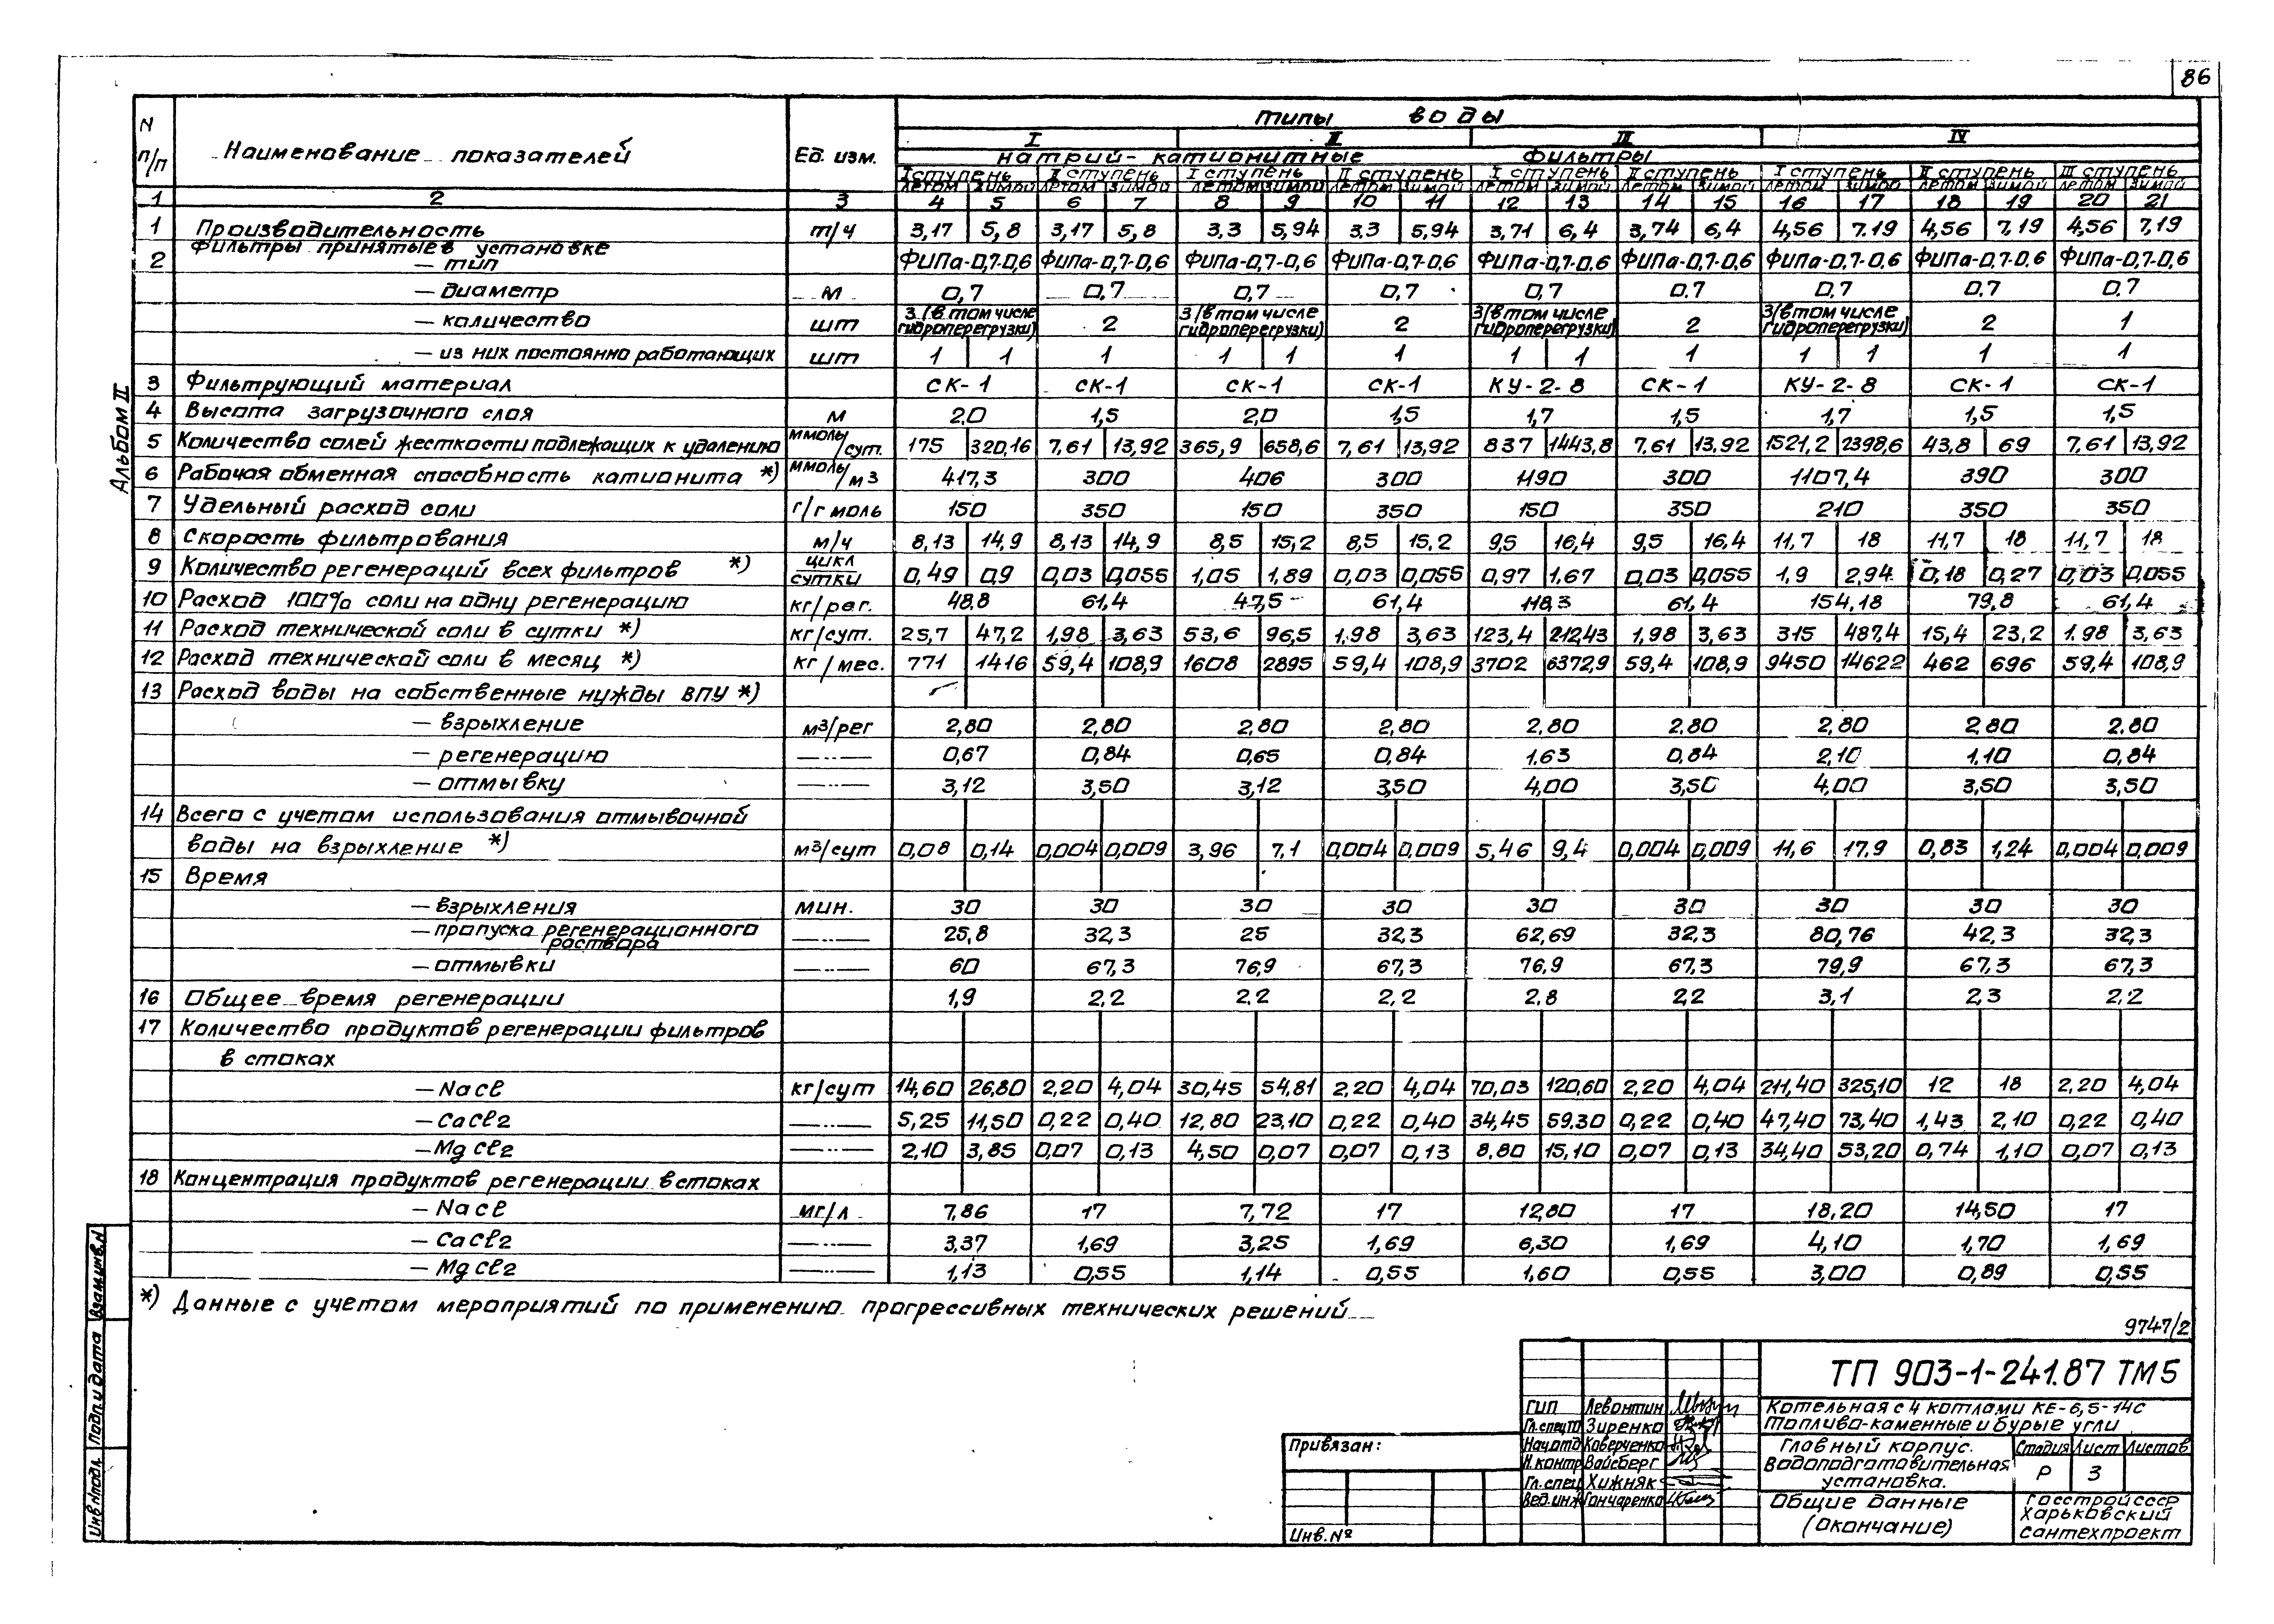 86
Альбом II
N п/п Наименование показателей Ед. изм. типы воды
I II III IV
натрий-катионитные фильтры
I ступень II ступень I ступень II ступень I ступень II ступень I ступень II ступень III ступень
летом зимой летом зимой летом зимой летом зимой летом зимой летом зимой летом зимой летом зимой летом зимой
1 2 3 4 5 6 7 8 9 10 11 12 13 14 15 16 17 18 19 20 21
1 Производительность т/ч 3,17 5,8 3,17 5,8 3,3 5,94 3,3 5,94 3,71 6,4 3,74 6,4 4,56 7.19 4,56 7,19 4,56 7,19
Фильтры принятые в установке
2 — тип ФИПа-0,7-0,6 ФИПа-0,7-0,6 ФИПа-0,7-0,6 ФИПа-0,7-0,6 ФИПа-0,7-0.6 ФИПа-0,7-0,6 ФИПа-0,7-0.6 ФИПа-0,7-0.6 ФИПа-0,7-0,6
— диаметр м 0,7 0,7 0,7 0,7 0,7 0.7 0,7 0,7 0,7
— количество шт 3 (в том числе гидроперегрузки) 2 3 (в том числе гидроперегрузки) 2 3 (в том числе гидроперегрузки) 2 3 (в том числе гидроперегрузки) 2 1
— из них постоянно работающих шт 1 1 1 1 1 1 1 1 1 1 1 1 1
3 Фильтрующий материал СК-1 СК-1 СК-1 СК-1 КУ-2-8 СК-1 КУ-2-8 СК-1 СК-1
4 Высота загрузочного слоя м 2,0 1,5 2,0 1,5 1,7 1,5 1,7 1,5 1,5
5 Количество солей жесткости подлежащих к удалению ммоль/сут. 175 320,16 7,61 13,92 365,9 658,6 7,61 13,92 837 1443,8 7,61 13,92 1521,2 2398,6 43,8 69 7,61 13,92
6 Рабочая обменная способность катионита *) ммоль/м3 417,3 300 406 300 1190 300 1107,4 390 300
7 Удельный расход соли г/г моль 150 350 150 350 150 350 210 350 350
8 Скорость фильтрования м/ч 8,13 14,9 8,13 14,9 8,5 15,2 8,5 15,2 9,5 16,4 9,5 16,4 11,7 18 11,7 18 11,7 18
9 Количество регенераций всех фильтров *) цикл/сутки 0,49 0,9 0,03 0,055 1,05 1,89 0,03 0,055 0,97 1,67 0,03 0,055 1,9 2,94 0,18 0,27 0,03 0,055
10 Расход 100% соли на одну регенерацию кг/рег. 48,8 61,4 47,5 61,4 118,3 61,4 154,18 79,8 61,4
11 Расход технической соли в сутки *) кг/сут. 25,7 47,2 1,98 3,63 53,6 96,5 1,98 3,63 123,4 212,43 1,98 3,63 315 487,4 15,4 23,2 1.98 3,63
12 Расход технической соли в месяц *) кг/мес. 771 1416 59,4 108,9 1608 2895 59,4 108,9 3702 6372,9 59,4 108,9 9450 14622 462 696 59,4 108,9
13 Расход воды на собственные нужды ВПУ *)
— взрыхление м3/рег 2,80 2,80 2,80 2,80 2,80 2,80 2,80 2,80 2,80
— регенерацию —··— 0,67 0,84 0,65 0,84 1,63 0,84 2,10 1,10 0,84
— отмывку —··— 3,12 3,50 3,12 3,50 4,00 3,50 4,00 3,50 3,50
14 Всего с учетом использования отмывочной
воды на взрыхление *) м3/сут 0,08 0,14 0,004 0,009 3,96 7,1 0,004 0,009 5,46 9,4 0,004 0,009 11,6 17,9 0,83 1,24 0,004 0,009
15 Время
— взрыхления мин. 30 30 30 30 30 30 30 30 30
— пропуска регенерационного раствора —··— 25,8 32,3 25 32,3 62,69 32,3 80,76 42,3 32,3
— отмывки —··— 60 67,3 76,9 67,3 76,9 67,3 79,9 67,3 67,3
16 Общее время регенерации 1,9 2,2 2,2 2,2 2,8 2,2 3,1 2,3 2,2
17 Количество продуктов регенерации фильтров
в стоках
— NaCl кг/сут 14,60 26,80 2,20 4,04 30,45 54,81 2,20 4,04 70,03 120,60 2,20 4,04 211,40 325,10 12 18 2,20 4,04
— CaCl2 —··— 5,25 11,50 0,22 0,40 12,80 23,10 0,22 0,40 34,45 59,30 0,22 0,40 47,40 73,40 1,43 2,10 0,22 0,40
— MgCl2 —··— 2,10 3,85 0,07 0,13 4,50 0,07 0,07 0,13 8,80 15,10 0,07 0,13 34,40 53,20 0,74 1,10 0,07 0,13
18 Концентрация продуктов регенерации в стоках
— NaCl мг/л 7,86 17 7,72 17 12,80 17 18,20 14,50 17
— CaCl2 —··— 3,37 1,69 3,25 1,69 6,30 1,69 4,10 1,70 1,69
— MgCl2 —··— 1,13 0,55 1,14 0,55 1,60 0,55 3,00 0,89 0,55
*) Данные с учетом мероприятий по применению прогрессивных технических решений
9747/2
ТП 903-1-241.87 ТМ5
Котельная с 4 котлами КЕ-6,5-14с
Топливо-каменные и бурые угли
ГИП Левонтин
Гл.спец Зиренко
Нач.отд Коверченко
Н.контр Вайсберг
Гл.спец Хижняк
Вед.инж Гончаренко
Привязан:
Инв.№
Главный корпус.
Водоподготовительная
установка.
Стадия Лист Листов
Р 3
Общие данные
(окончание)
Госстрой СССР
Харьковский
сантехпроект
Взам.инв.N
Подп. и дата
Инв.Nподл.